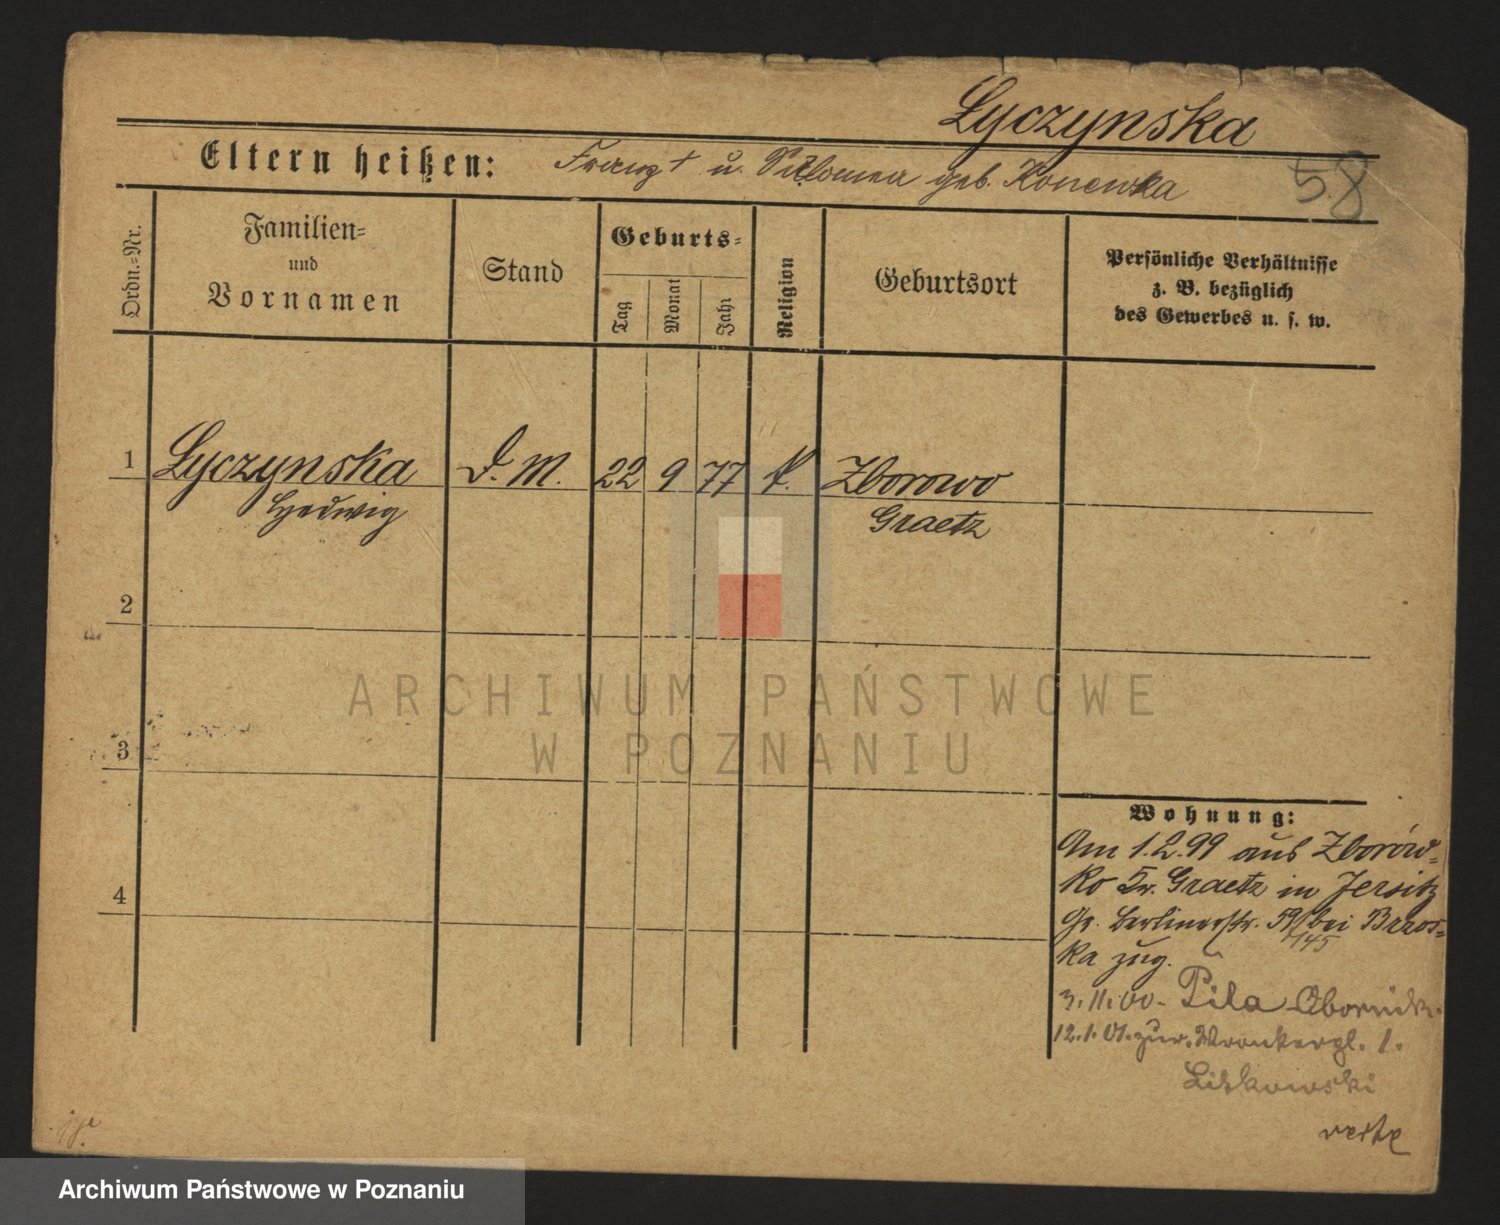 Lyczynska
58
Eltern heißen: Franz † u. Filomena geb. Konewka
Ordn.=Nr.
Familien=
und
Vornamen
Stand
Geburts=
Tag
Monat
Jahr
Religion
Geburtsort
Persönliche Verhältnisse
z. B. bezüglich
des Gewerbes u. s. w.
1 Lyczynska D. M. 22 9 77 k. Zborowo
Hedwig Graetz
2
3
4
ARCHIWUM PAŃSTWOWE
W POZNANIU
Wohnung:
Am 1.2.99 aus Zborów=
ko Kr. Graetz in Jersitz
Gr. Berlinerstr. bei
ka zug.
3.11.00 - Pila Obornik.
12.1.01. zur. Wronkergl. 1.
Liskowski
Archiwum Państwowe w Poznaniu